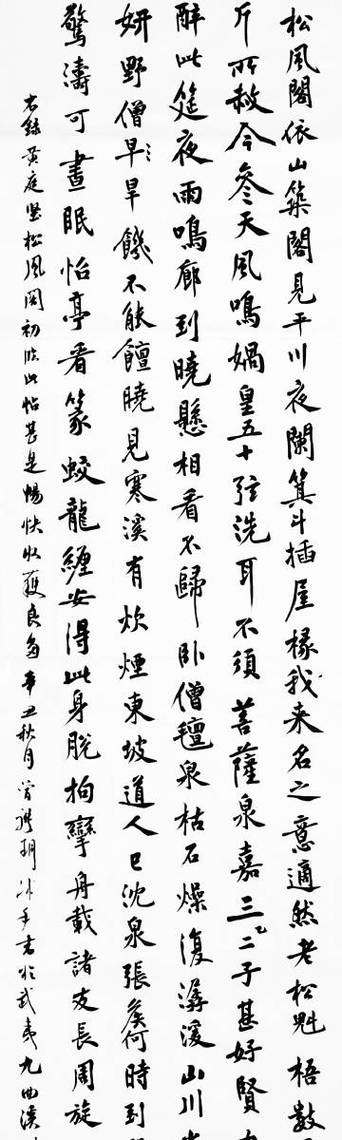 松風閣依山築閣見平川夜闌箕斗插屋椽我来名之意適然老松魁梧數
斤所赦今參天風鳴媧皇五十弦洗耳不須菩薩泉嘉三二子甚好賢
醉此筵夜雨鳴廊到曉懸相看不歸卧僧氊泉枯石燥復潺湲山川
妍野僧早旱饑不能饘曉見寒溪有炊煙東坡道人已沈泉張侯何時到
驚濤可晝眠怡亭看篆蛟龍纏安得此身脫拘攣舟載諸友長周旋
右錄黄庭堅松風閣初臨此帖甚是暢快收穫良多辛丑秋月曾手書於武夷九曲溪